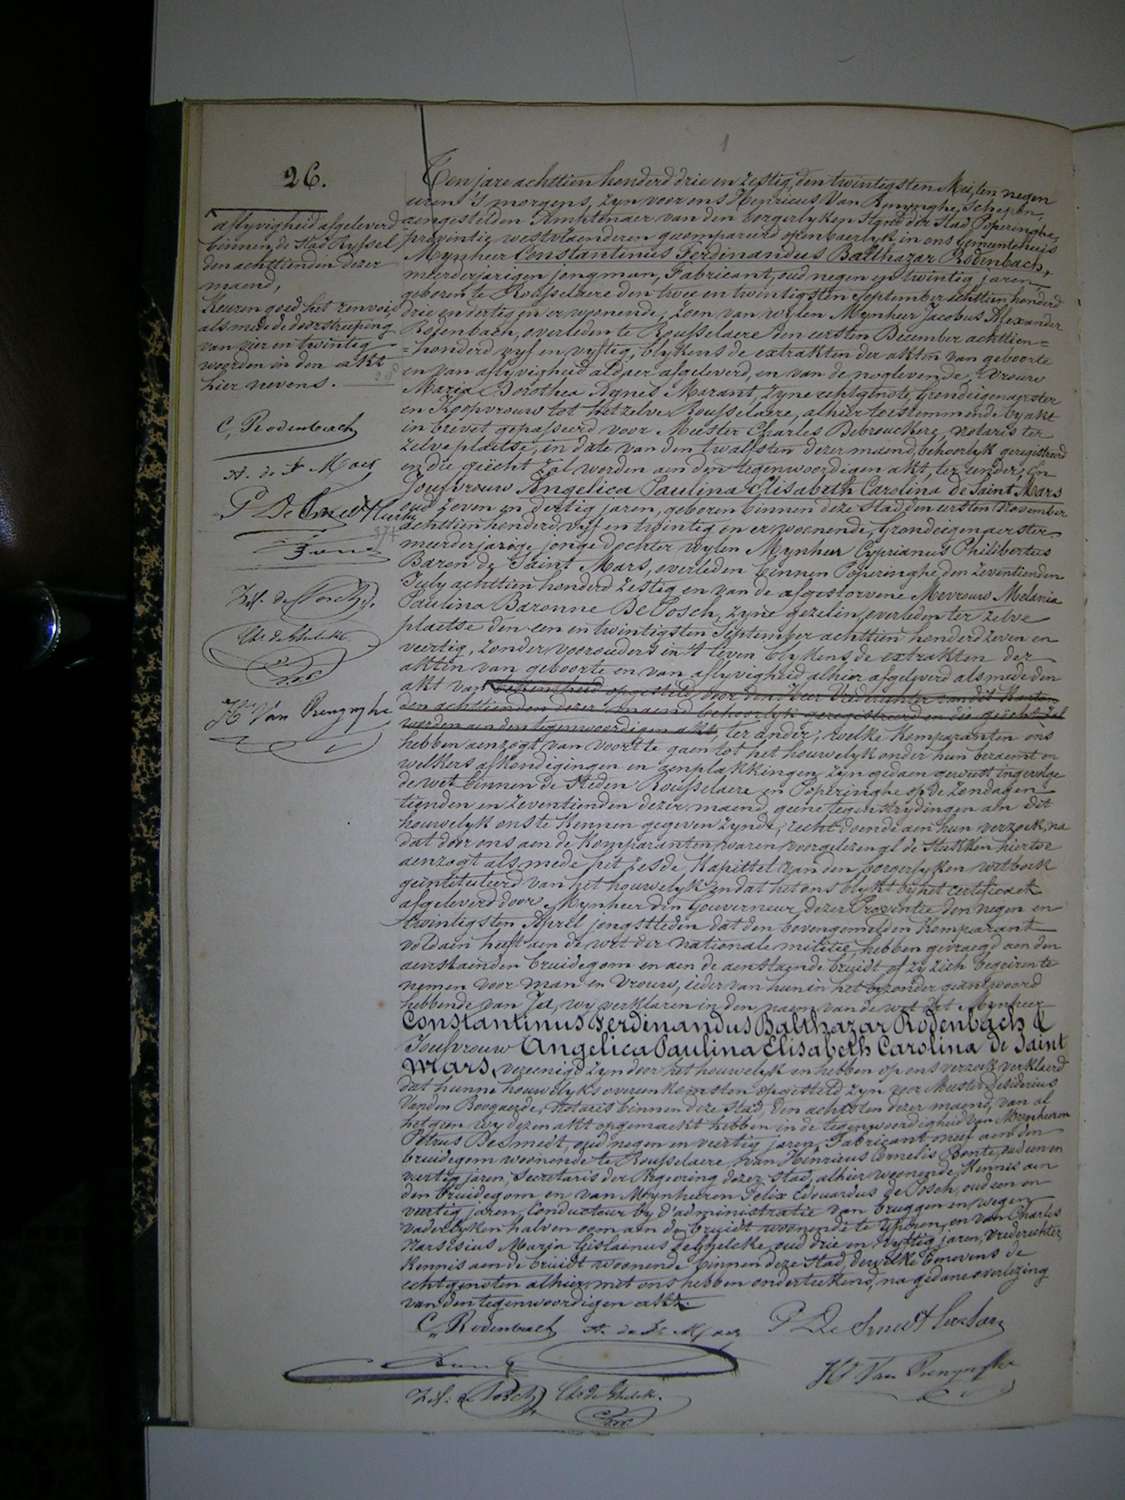 26.
aflyvigheid afgeleverd
binnen de stad Ryssel
den achttienden dezer
maend,
Keuren goed het renvooi
als mede de doorstreeping
van vier en twintig
woorden in den akt
hier nevens.
C. Rodenbach
A. de St Mars
P. De Smedt
Zef. de Posch
Ch. de Ghelcke
H. Van Renynghe
Ten jare achttien honderd drie en zestig, den twintigsten Mei, ten negen
uren 's morgens, zyn voor ons Henricus Van Renynghe, Schepen,
aengestelden Amptenaer van den borgerlyken stand der stad Poperinghe,
provintie westvlaenderen gecompareerd openbaerlyk in ons gemeentehuis
Mynheer Constantinus Ferdinandus Balthazar Rodenbach,
meerderjarigen jongman, Fabricant, oud negen en twintig jaren,
geboren te Rousselaere den twee en twintigsten September achttien honderd
drie en dertig en er wonende, zoon van wylen Mynheer Jacobus Alexander
Rodenbach, overleden te Rousselaere den eersten December achttien-
honderd vyf en vyftig, blykens de extrakten der akten van geboorte
en van aflyvigheid aldaer afgeleverd, en van de noglevende Vrouw
Maria Dorothea Agnes Marant, zyne echtgenote, Grondeigenaerster
en Koopvrouw tot hetzelve Rousselaere, alhier toestemmende by akt
in brevet gepasseerd voor Meester Charles Debrouckere, notaris ter
zelve plaetse, in date van den twalfsten dezer maend, behoorlyk geregistreerd
en die gehecht zal worden aen den tegenwoordigen akt, ter eender, En
Joufvrouw Angelica Paulina Elisabeth Carolina de Saint Mars
oud zeven en dertig jaren, geboren binnen deze stad den eersten November
achttien honderd vyf en twintig en er woonende, Grondeigenaerster
meerderjarige jonge dochter wylen Mynheer Cyprianus Philibertus
Baron de Saint Mars, overleden binnen Poperinghe den zeventienden
July achttien honderd zestig en van de afgestorvene Mevrouw Melania
Paulina Baronne De Posch, zyne gezelin, overleden ter zelve
plaetse den een en twintigsten September achttien honderd zeven en
veertig, zonder voorouders in 't leven blykens de extrakten der
akten van geboorte en van aflyvigheid alhier afgeleverd als mede den
akt van bekendheid opgesteld door den Heer Vrederechter van dit Kanton
den achttienden dezer maend behoorlyk geregistreerd en die gehecht zal
worden aen den tegenwoordigen akt, ter ander; welke komparanten ons
hebben aenzogt van voort te gaen tot het houwelyk onder hun beraemt en
welkers afkondigingen en aenplakkingen zyn gedaen geweest ingevolge
de wet binnen de steden Rousselaere en Poperinghe op de zondagen
tienden en zeventienden dezer maend, geene tegenstrydingen aen dit
houwelyk ons te kennen gegeven zynde; recht doende aen hun verzoek, na
dat door ons aen de komparanten waren voorgelezen al de stukken hiertoe
aenzogt als mede het zesde Kapittel van den borgerlyken wetboek
geïntituleerd van het houwelyk en dat het ons blykt by het certificaet
afgeleverd door Mynheer den Gouverneur dezer Provintie den negen en
twintigsten April jongstleden dat den bovengemelden komparant
voldaen heeft aen de wet der nationale militie, hebben gevraegd aen den
aenstaenden bruidegom en aen de aenstaende bruidt of zy zich begeiren te
nemen voor man en vrouw, ieder van hun in het byzonder geantwoord
hebbende van Ja, wy verklaren in den naem van de wet dat Mynheer
Constantinus Ferdinandus Balthazar Rodenbach &
Joufvrouw Angelica Paulina Elisabeth Carolina de Saint
Mars, vereenigd zyn door het houwelyk en hebben op ons verzoek verklaerd
dat hunne houwelyks overeenkomsten opgesteld zyn voor Meester Desiderius
Vanden Boogaerde, Notaris binnen deze stad, den achtsten dezer maend, van al
hetgeen wy dezen akt opgemaekt hebben in de tegenwoordigheid van Mynheeren
Petrus Desmedt, oud negen en veertig jaren, Fabricant, neef aen den
bruidegom woonende te Rousselaere, van Henricus Cornelis Bonte, oud een en
veertig jaren, Secretaris der Regeering dezer stad, alhier woonende, Kennis aen
den bruidegom en van Mynheeren Felix Edouardus de Posch, oud een en
veertig jaren, Conducteur by d'administratie van bruggen en wegen
vaderlyken halven oom aen de bruidt woonende te Yperen, en van Charles
Narsisius Maria Gislaenus deGhelcke, oud drie en vyftig jaren, Vrederechter,
Kennis aen de bruidt woonende binnen deze stad, dewelke benevens de
echtgenoten alhier met ons hebben onderteekend, na gedane overlezing
van den tegenwoordigen akt.
C. Rodenbach A. de St Mars P. De Smedt
H. Van Renynghe
Zef. de Posch Ch. de Ghelcke